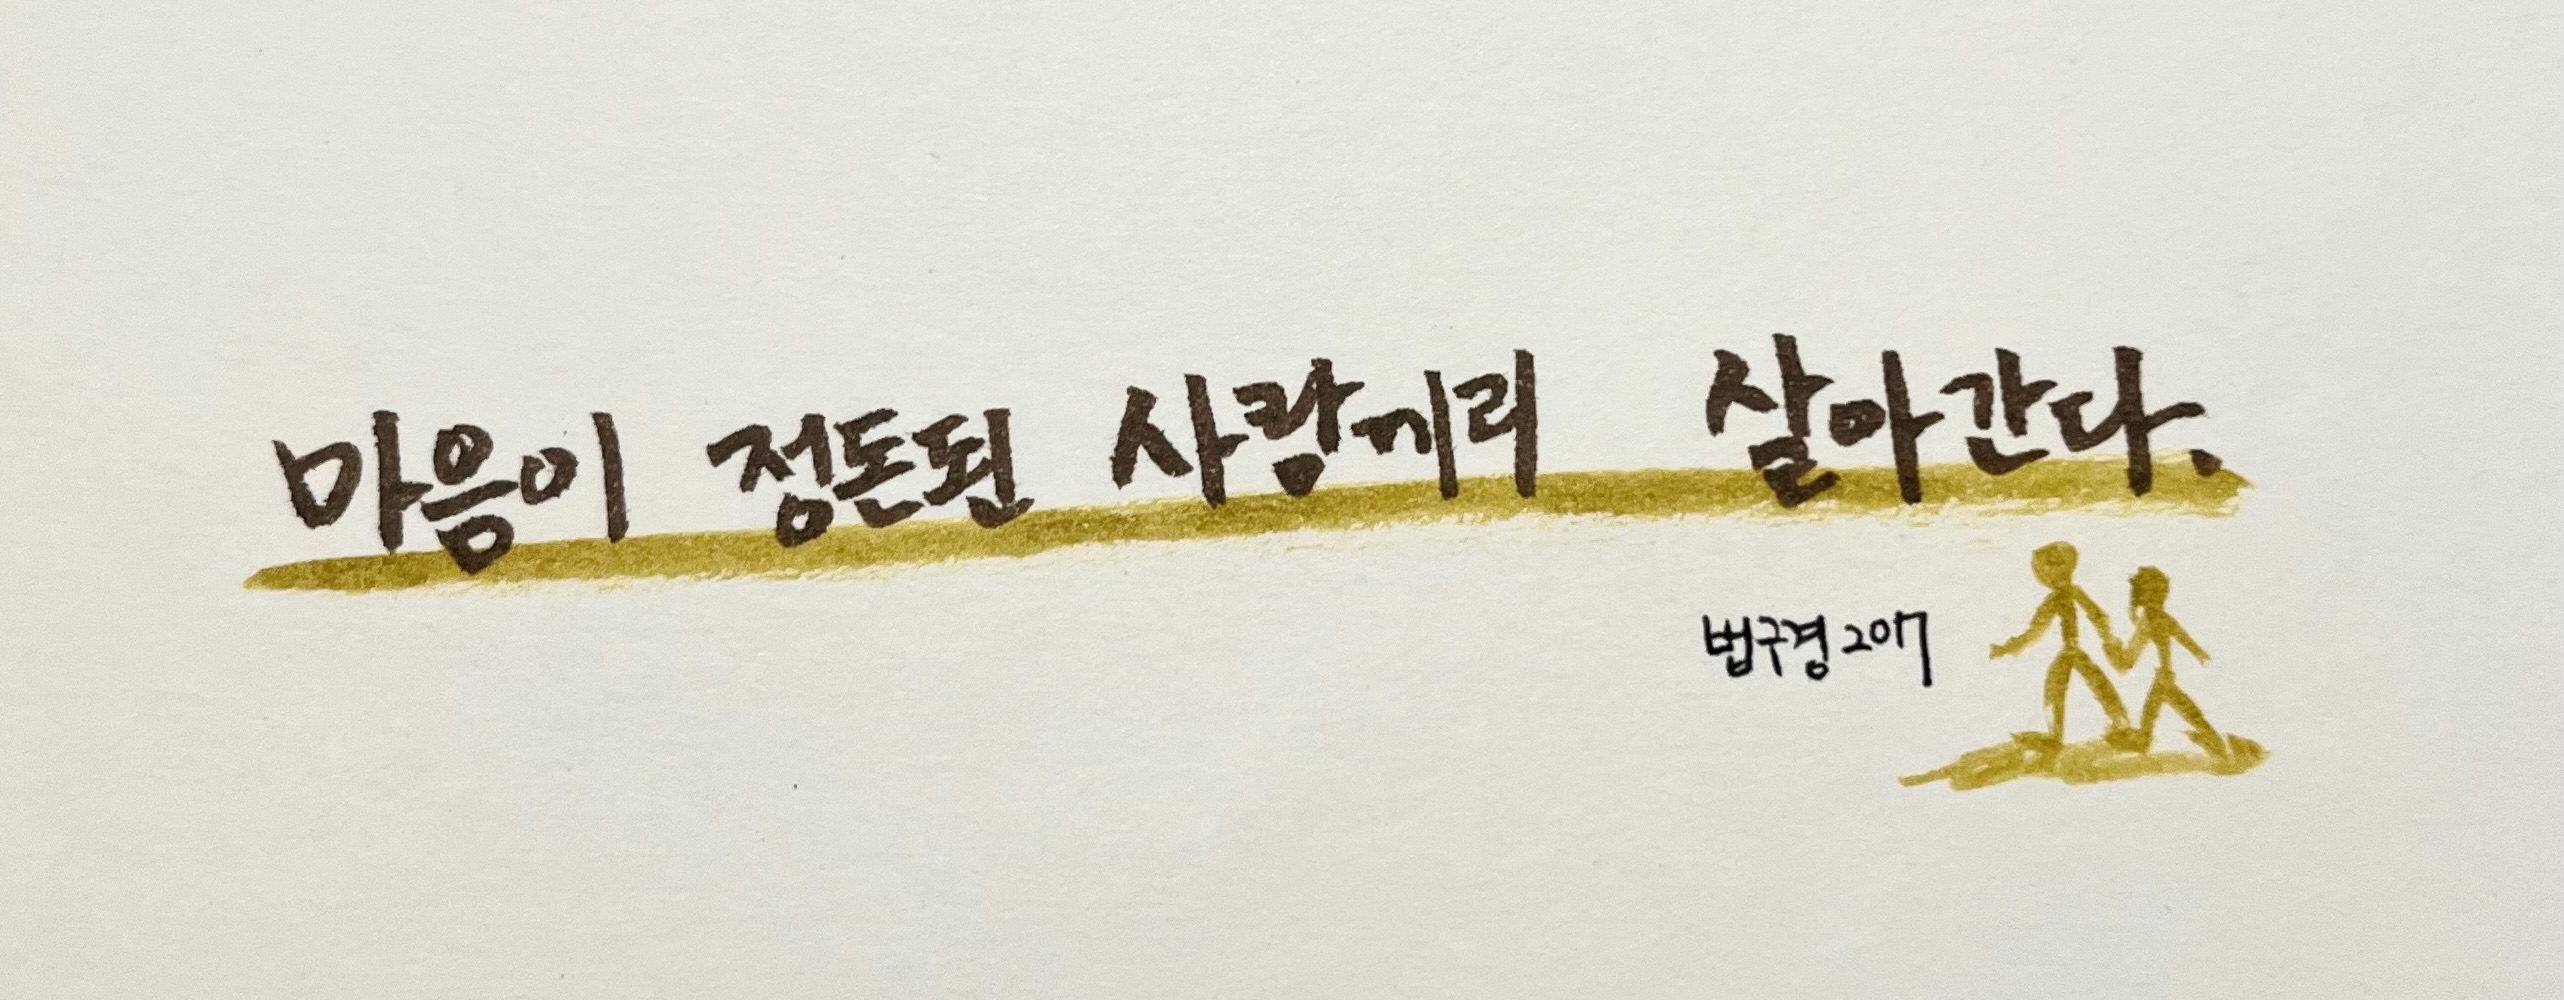 마음이 정돈된 사람끼리 살아간다.
법구경 207